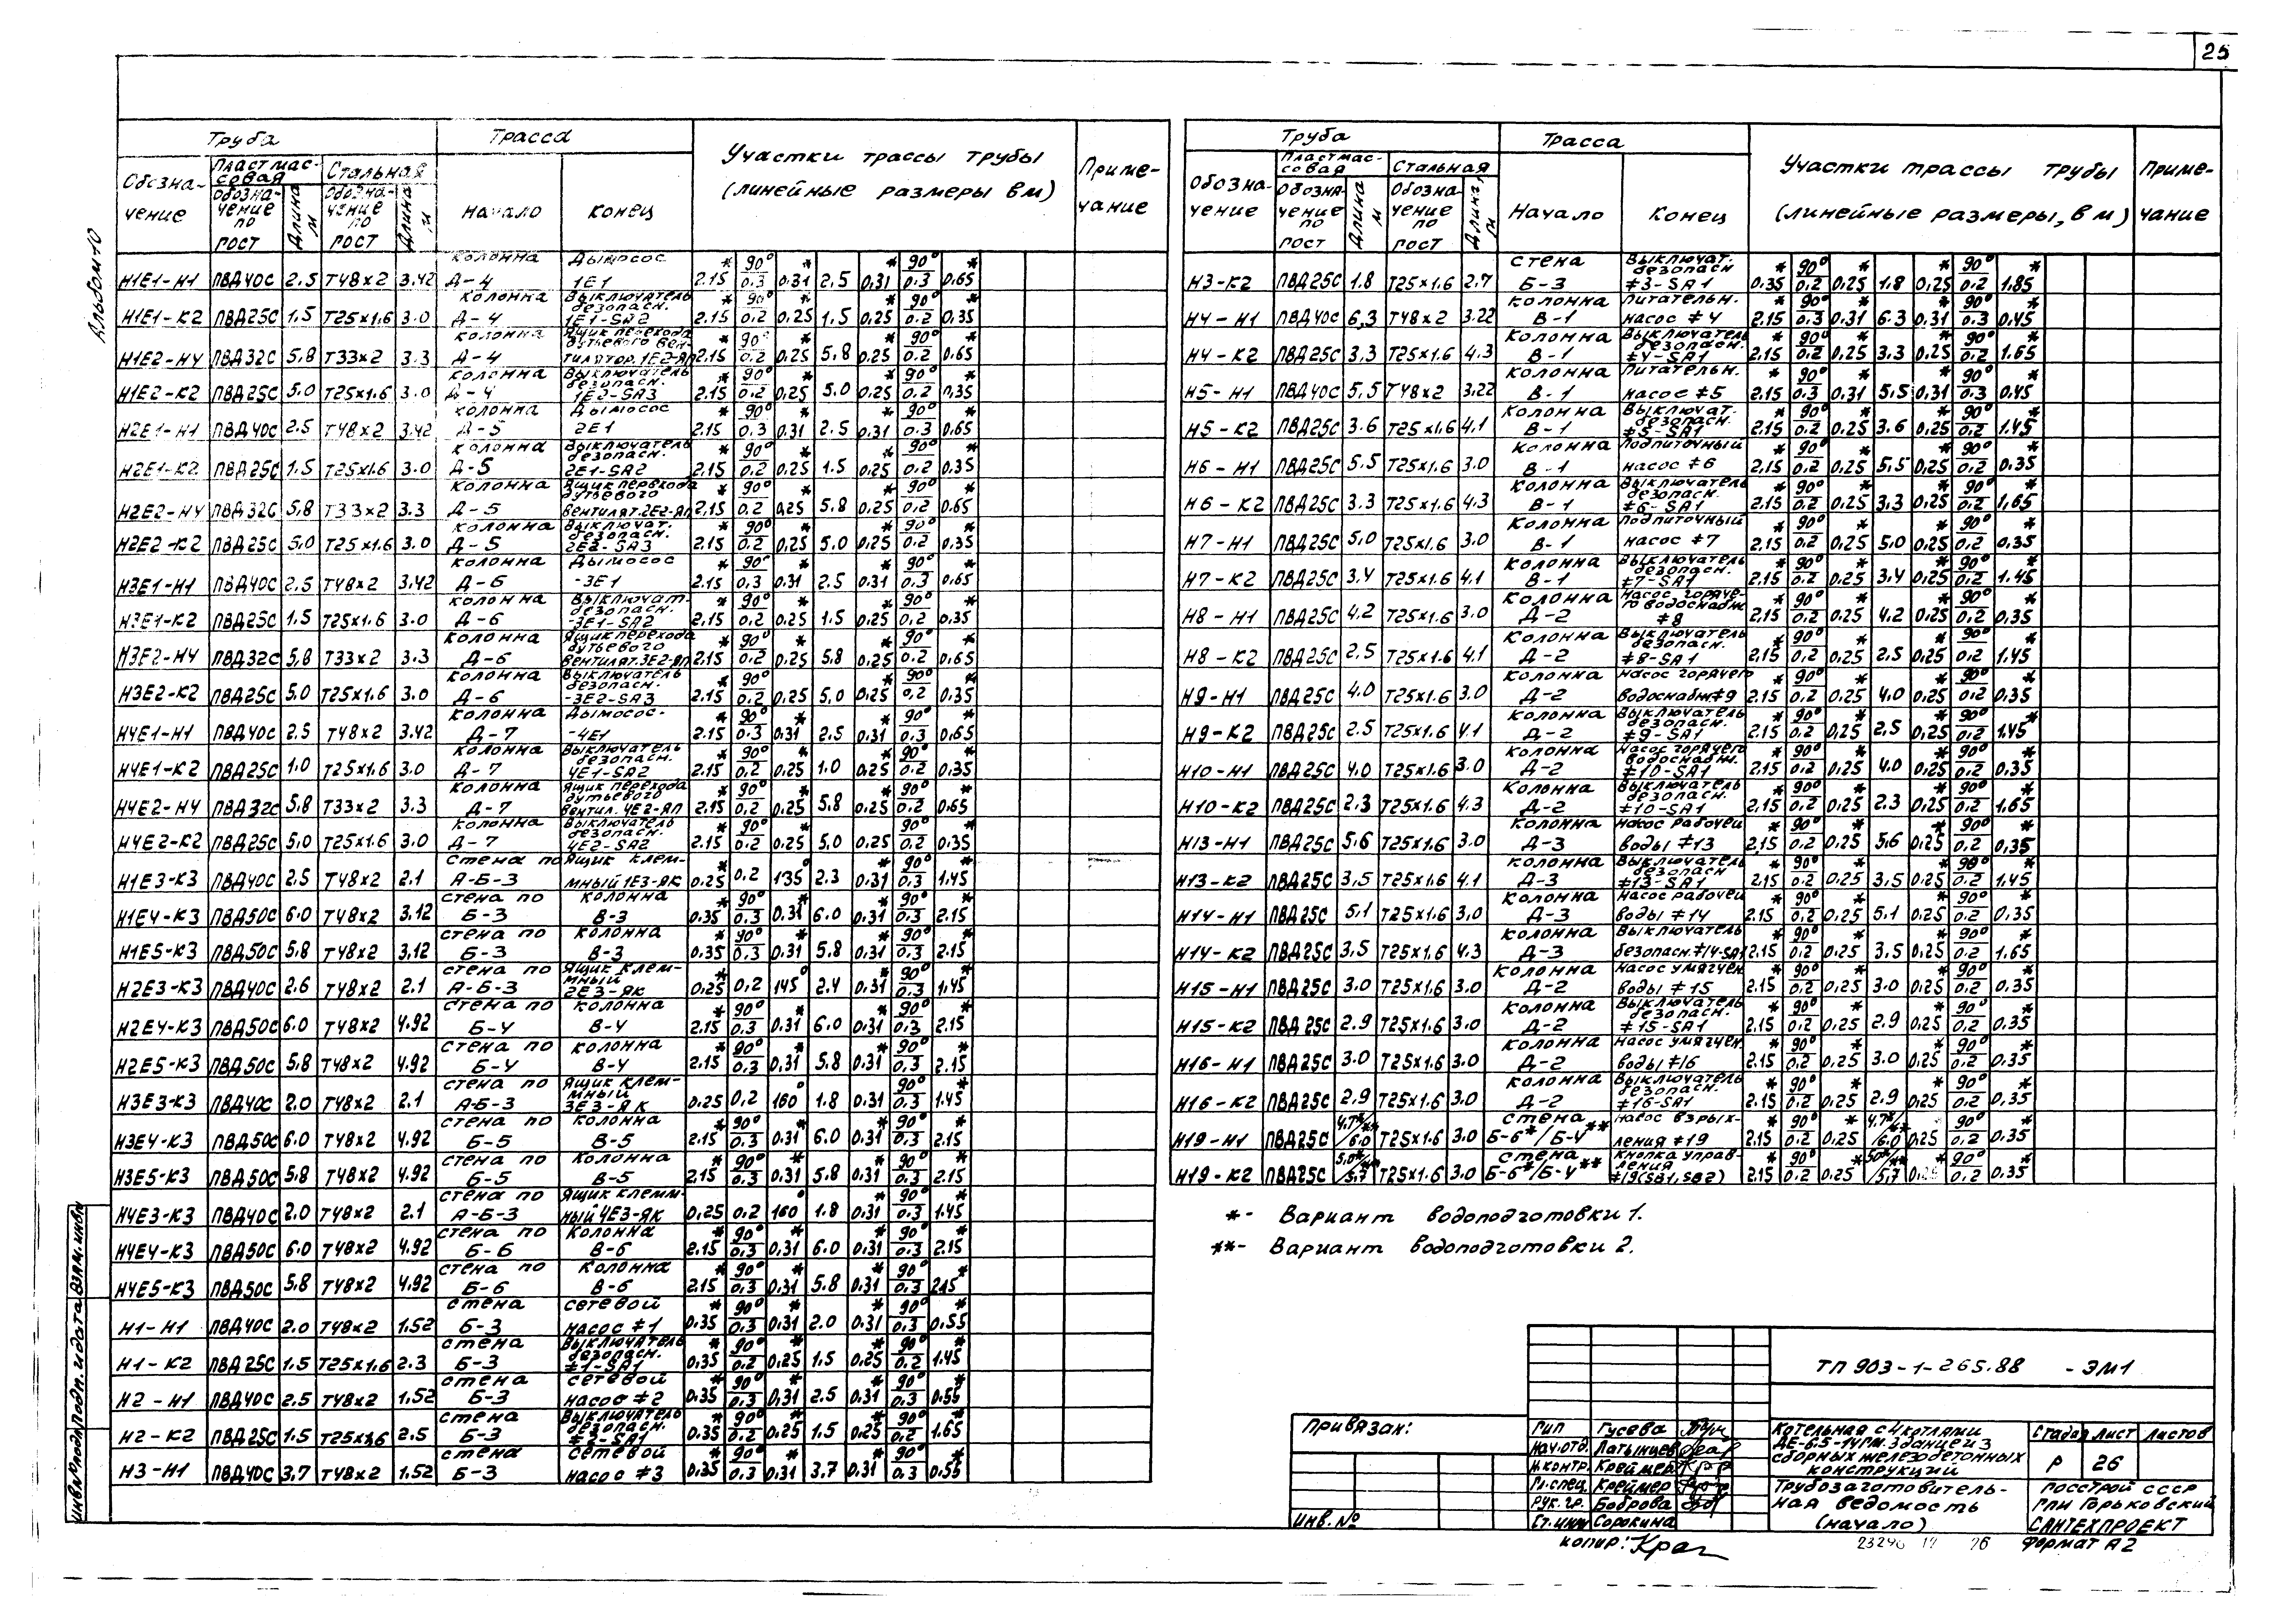 25
Альбом 10
Труба
Трасса
Участки трассы трубы
(линейные размеры в м)
Приме-
чание
Обозна-
чение
Пластмас-
совая
Стальная
Обозна-
чение
по
ГОСТ
Длина
м
Обозна-
чение
по
ГОСТ
Длина
м
Начало
Конец
Н1Е1-Н1 ПВД40С 2.5 Т48×2 3.42 колонна Д-4 Дымосос 1Е1 2.15* 90°/0.3 0.31* 2.5 0.31* 90°/0.3 0.65*
Н1Е1-К2 ПВД25С 1.5 Т25×1.6 3.0 колонна Д-4 Выключатель безопасн. 1Е1-SA2 2.15* 90°/0.2 0.25* 1.5 0.25* 90°/0.2 0.35*
Н1Е2-Н4 ПВД32С 5.8 Т33×2 3.3 колонна Д-4 Ящик перехода дутьевого вен-тилятор.1Е2-ЯП 2.15* 90°/0.2 0.25* 5.8 0.25* 90°/0.2 0.65*
Н1Е2-К2 ПВД25С 5.0 Т25×1.6 3.0 колонна Д-4 Выключатель безопасн. 1Е2-SA3 2.15* 90°/0.2 0.25* 5.0 0.25* 90°/0.2 0.35*
Н2Е1-Н1 ПВД40С 2.5 Т48×2 3.42 колонна Д-5 Дымосос 2Е1 2.15* 90°/0.3 0.31* 2.5 0.31* 90°/0.3 0.65*
Н2Е1-К2 ПВД25С 1.5 Т25×1.6 3.0 колонна Д-5 Выключатель безопасн. 2Е1-SA2 2.15* 90°/0.2 0.25* 1.5 0.25* 90°/0.2 0.35*
Н2Е2-Н4 ПВД32С 5.8 Т33×2 3.3 колонна Д-5 Ящик перехода дутьевого вентилят.2Е2-ЯП 2.15* 90°/0.2 0.25* 5.8 0.25* 90°/0.2 0.65*
Н2Е2-К2 ПВД25С 5.0 Т25×1.6 3.0 колонна Д-5 Выключат. безопасн. 2Е2-SA3 2.15* 90°/0.2 0.25* 5.0 0.25* 90°/0.2 0.35*
Н3Е1-Н1 ПВД40С 2.5 Т48×2 3.42 колонна Д-6 Дымосос -3Е1 2.15* 90°/0.3 0.31* 2.5 0.31* 90°/0.3 0.65*
Н3Е1-К2 ПВД25С 1.5 Т25×1.6 3.0 колонна Д-6 Выключат. безопасн. -3Е1-SA2 2.15* 90°/0.2 0.25* 1.5 0.25* 90°/0.2 0.35*
Н3Е2-Н4 ПВД32С 5.8 Т33×2 3.3 колонна Д-6 Ящик перехода дутьевого вентилят.3Е2-ЯП 2.15* 90°/0.2 0.25* 5.8 0.25* 90°/0.2 0.65*
Н3Е2-К2 ПВД25С 5.0 Т25×1.6 3.0 колонна Д-6 Выключатель безопасн. -3Е2-SA3 2.15* 90°/0.2 0.25* 5.0 0.25* 90°/0.2 0.35*
Н4Е1-Н1 ПВД40С 2.5 Т48×2 3.42 колонна Д-7 Дымосос- -4Е1 2.15* 90°/0.3 0.31* 2.5 0.31* 90°/0.3 0.65*
Н4Е1-К2 ПВД25С 1.0 Т25×1.6 3.0 колонна Д-7 Выключатель безопасн. 4Е1-SA2 2.15* 90°/0.2 0.25* 1.0 0.25* 90°/0.2 0.35*
Н4Е2-Н4 ПВД32С 5.8 Т33×2 3.3 колонна Д-7 Ящик перехода дутьевого вентил. 4Е2-ЯП 2.15* 90°/0.2 0.25* 5.8 0.25* 90°/0.2 0.65*
Н4Е2-К2 ПВД25С 5.0 Т25×1.6 3.0 колонна Д-7 Выключатель безопасн. 4Е2-SA2 2.15* 90°/0.2 0.25* 5.0 0.25* 90°/0.2 0.35*
Н1Е3-К3 ПВД40С 2.5 Т48×2 2.1 стена по А-Б-3 Ящик клем-мный 1Е3-ЯК 0.25* 0.2 135° 2.3 0.31* 90°/0.3 1.45*
Н1Е4-К3 ПВД50С 6.0 Т48×2 3.12 стена по Б-3 колонна В-3 0.35* 90°/0.3 0.31* 6.0 0.31* 90°/0.3 2.15*
Н1Е5-К3 ПВД50С 5.8 Т48×2 3.12 стена по Б-3 колонна В-3 0.35* 90°/0.3 0.31* 5.8 0.31* 90°/0.3 2.15*
Н2Е3-К3 ПВД40С 2.6 Т48×2 2.1 стена по А-Б-3 Ящик клем-мный 2Е3-ЯК 0.25* 0.2 145° 2.4 0.31* 90°/0.3 1.45*
Н2Е4-К3 ПВД50С 6.0 Т48×2 4.92 стена по Б-4 колонна В-4 2.15* 90°/0.3 0.31* 6.0 0.31* 90°/0.3 2.15*
Н2Е5-К3 ПВД50С 5.8 Т48×2 4.92 стена по Б-4 колонна В-4 2.15* 90°/0.3 0.31* 5.8 0.31* 90°/0.3 2.15*
Н3Е3-К3 ПВД40С 2.0 Т48×2 2.1 стена по А-Б-3 Ящик клем-мный 3Е3-ЯК 0.25 0.2 160° 1.8 0.31* 90°/0.3 1.45*
Н3Е4-К3 ПВД50С 6.0 Т48×2 4.92 стена по Б-5 колонна В-5 2.15* 90°/0.3 0.31* 6.0 0.31* 90°/0.3 2.15*
Н3Е5-К3 ПВД50С 5.8 Т48×2 4.92 стена по Б-5 колонна В-5 2.15* 90°/0.3 0.31* 5.8 0.31* 90°/0.3 2.15*
Н4Е3-К3 ПВД40С 2.0 Т48×2 2.1 стена по А-Б-3 Ящик клемм-ный 4Е3-ЯК 0.25 0.2 160° 1.8 0.31* 90°/0.3 1.45*
Н4Е4-К3 ПВД50С 6.0 Т48×2 4.92 стена по Б-6 колонна В-6 2.15* 90°/0.3 0.31* 6.0 0.31* 90°/0.3 2.15*
Н4Е5-К3 ПВД50С 5.8 Т48×2 4.92 стена по Б-6 колонна В-6 2.15* 90°/0.3 0.31* 5.8 0.31* 90°/0.3 2.15*
Н1-Н1 ПВД40С 2.0 Т48×2 1.52 стена Б-3 сетевой насос #1 0.35* 90°/0.3 0.31* 2.0 0.31* 90°/0.3 0.55*
Н1-К2 ПВД25С 1.5 Т25×1.6 2.3 стена Б-3 Выключатель безопасн. #1-SA1 0.35* 90°/0.2 0.25* 1.5 0.25* 90°/0.2 1.45*
Н2-Н1 ПВД40С 2.5 Т48×2 1.52 стена Б-3 сетевой насос #2 0.35* 90°/0.3 0.31* 2.5 0.31* 90°/0.3 0.55*
Н2-К2 ПВД25С 1.5 Т25×1.6 2.5 стена Б-3 Выключатель безопасн. #2-SA1 0.35* 90°/0.2 0.25* 1.5 0.25* 90°/0.2 1.65*
Н3-Н1 ПВД40С 3.7 Т48×2 1.52 стена Б-3 сетевой насос #3 0.35* 90°/0.3 0.31* 3.7 0.31* 90°/0.3 0.55*
Труба
Трасса
Участки трассы трубы
(линейные размеры, в м)
Приме-
чание
Обозна-
чение
Пластмас-
совая
Стальная
Обозна-
чение
по
ГОСТ
Длина
м
Обозна-
чение
по
ГОСТ
Длина,
м
Начало
Конец
Н3-К2 ПВД25С 1.8 Т25×1.6 2.7 стена Б-3 Выключат. безопасн #3-SA1 0.35* 90°/0.2 0.25* 1.8 0.25* 90°/0.2 1.85*
Н4-Н1 ПВД40С 6.3 Т48×2 3.22 колонна В-1 Питательн. насос #4 2.15* 90°/0.3 0.31* 6.3 0.31* 90°/0.3 0.45*
Н4-К2 ПВД25С 3.3 Т25×1.6 4.3 колонна В-1 Выключатель безопасн. #4-SA1 2.15* 90°/0.2 0.25* 3.3 0.25* 90°/0.2 1.65*
Н5-Н1 ПВД40С 5.5 Т48×2 3.22 колонна В-1 Питательн. насос #5 2.15* 90°/0.3 0.31* 5.5 0.31* 90°/0.3 0.45*
Н5-К2 ПВД25С 3.6 Т25×1.6 4.1 колонна В-1 Выключат. безопасн #5-SA1 2.15* 90°/0.2 0.25* 3.6 0.25* 90°/0.2 1.45*
Н6-Н1 ПВД25С 5.5 Т25×1.6 3.0 колонна В-1 Подпиточный насос #6 2.15* 90°/0.2 0.25* 5.5 0.25* 90°/0.2 0.35*
Н6-К2 ПВД25С 3.3 Т25×1.6 4.3 колонна В-1 Выключатель безопасн. #6-SA1 2.15* 90°/0.2 0.25* 3.3 0.25* 90°/0.2 1.65*
Н7-Н1 ПВД25С 5.0 Т25×1.6 3.0 колонна В-1 Подпиточный насос #7 2.15* 90°/0.2 0.25* 5.0 0.25* 90°/0.2 0.35*
Н7-К2 ПВД25С 3.4 Т25×1.6 4.1 колонна В-1 Выключатель безопасн. #7-SA1 2.15* 90°/0.2 0.25* 3.4 0.25* 90°/0.2 1.45*
Н8-Н1 ПВД25С 4.2 Т25×1.6 3.0 колонна Д-2 Насос горяче-го водоснабж #8 2.15* 90°/0.2 0.25* 4.2 0.25* 90°/0.2 0.35*
Н8-К2 ПВД25С 2.5 Т25×1.6 4.1 колонна Д-2 Выключатель безопасн. #8-SA1 2.15* 90°/0.2 0.25* 2.5 0.25* 90°/0.2 1.45*
Н9-Н1 ПВД25С 4.0 Т25×1.6 3.0 колонна Д-2 насос горячего водоснабж#9 2.15* 90°/0.2 0.25* 4.0 0.25* 90°/0.2 0.35*
Н9-К2 ПВД25С 2.5 Т25×1.6 4.1 колонна Д-2 Выключатель безопасн. #9-SA1 2.15* 90°/0.2 0.25* 2.5 0.25* 90°/0.2 1.45*
Н10-Н1 ПВД25С 4.0 Т25×1.6 3.0 колонна Д-2 насос горячего водоснабж. #10-SA1 2.15* 90°/0.2 0.25* 4.0 0.25* 90°/0.2 0.35*
Н10-К2 ПВД25С 2.3 Т25×1.6 4.3 колонна Д-2 Выключатель безопасн. #10-SA1 2.15* 90°/0.2 0.25* 2.3 0.25* 90°/0.2 1.65*
Н13-Н1 ПВД25С 5.6 Т25×1.6 3.0 колонна Д-3 насос рабочей воды #13 2.15* 90°/0.2 0.25* 5.6 0.25* 90°/0.2 0.35*
Н13-К2 ПВД25С 3.5 Т25×1.6 4.1 колонна Д-3 Выключатель безопасн #13-SA1 2.15* 90°/0.2 0.25* 3.5 0.25* 90°/0.2 1.45*
Н14-Н1 ПВД25С 5.1 Т25×1.6 3.0 колонна Д-3 насос рабочей воды #14 2.15* 90°/0.2 0.25* 5.1 0.25* 90°/0.2 0.35*
Н14-К2 ПВД25С 3.5 Т25×1.6 4.3 колонна Д-3 Выключатель безопасн.#14-SA1 2.15* 90°/0.2 0.25* 3.5 0.25* 90°/0.2 1.65*
Н15-Н1 ПВД25С 3.0 Т25×1.6 3.0 колонна Д-2 насос умягчен. воды #15 2.15* 90°/0.2 0.25* 3.0 0.25* 90°/0.2 0.35*
Н15-К2 ПВД25С 2.9 Т25×1.6 3.0 колонна Д-2 Выключатель безопасн. #15-SA1 2.15* 90°/0.2 0.25* 2.9 0.25* 90°/0.2 0.35*
Н16-Н1 ПВД25С 3.0 Т25×1.6 3.0 колонна Д-2 насос умягчен. воды #16 2.15* 90°/0.2 0.25* 3.0 0.25* 90°/0.2 0.35*
Н16-К2 ПВД25С 2.9 Т25×1.6 3.0 колонна Д-2 Выключатель безопасн. #16-SA1 2.15* 90°/0.2 0.25* 2.9 0.25* 90°/0.2 0.35*
Н19-Н1 ПВД25С 4.7*/6.0** Т25×1.6 3.0 стена Б-6*/Б-4** насос взрых-ления #19 2.15* 90°/0.2 0.25* 4.7*/6.0** 0.25 90°/0.2 0.35*
Н19-К2 ПВД25С 5.0*/5.7** Т25×1.6 3.0 стена Б-6*/Б-4** кнопка управ-ления #19(SB1, SB2) 2.15* 90°/0.2 0.25* 5.0*/5.7** 90°/0.2 0.35*
*- Вариант водоподготовки 1.
**- Вариант водоподготовки 2.
ТП 903-1-265.88 -ЭМ1
Привязан:
Инв. №
ГИП Гусева
Нач.отд. Латынцев
Н.контр. Креймер
Гл.спец. Креймер
Рук. гр. Боброва
Ст.инж Сорокина
Котельная с 4 котлами
ДЕ-6.5-14ГМ. Здание из
сборных железобетонных
конструкций
Стадия Лист Листов
Р 26
Трубозаготовитель-
ная ведомость
(начало)
Госстрой СССР
ГПИ Горьковский
САНТЕХПРОЕКТ
копир:
26
Формат А2
Инв.№подл. Подп. и дата Взам.инв№